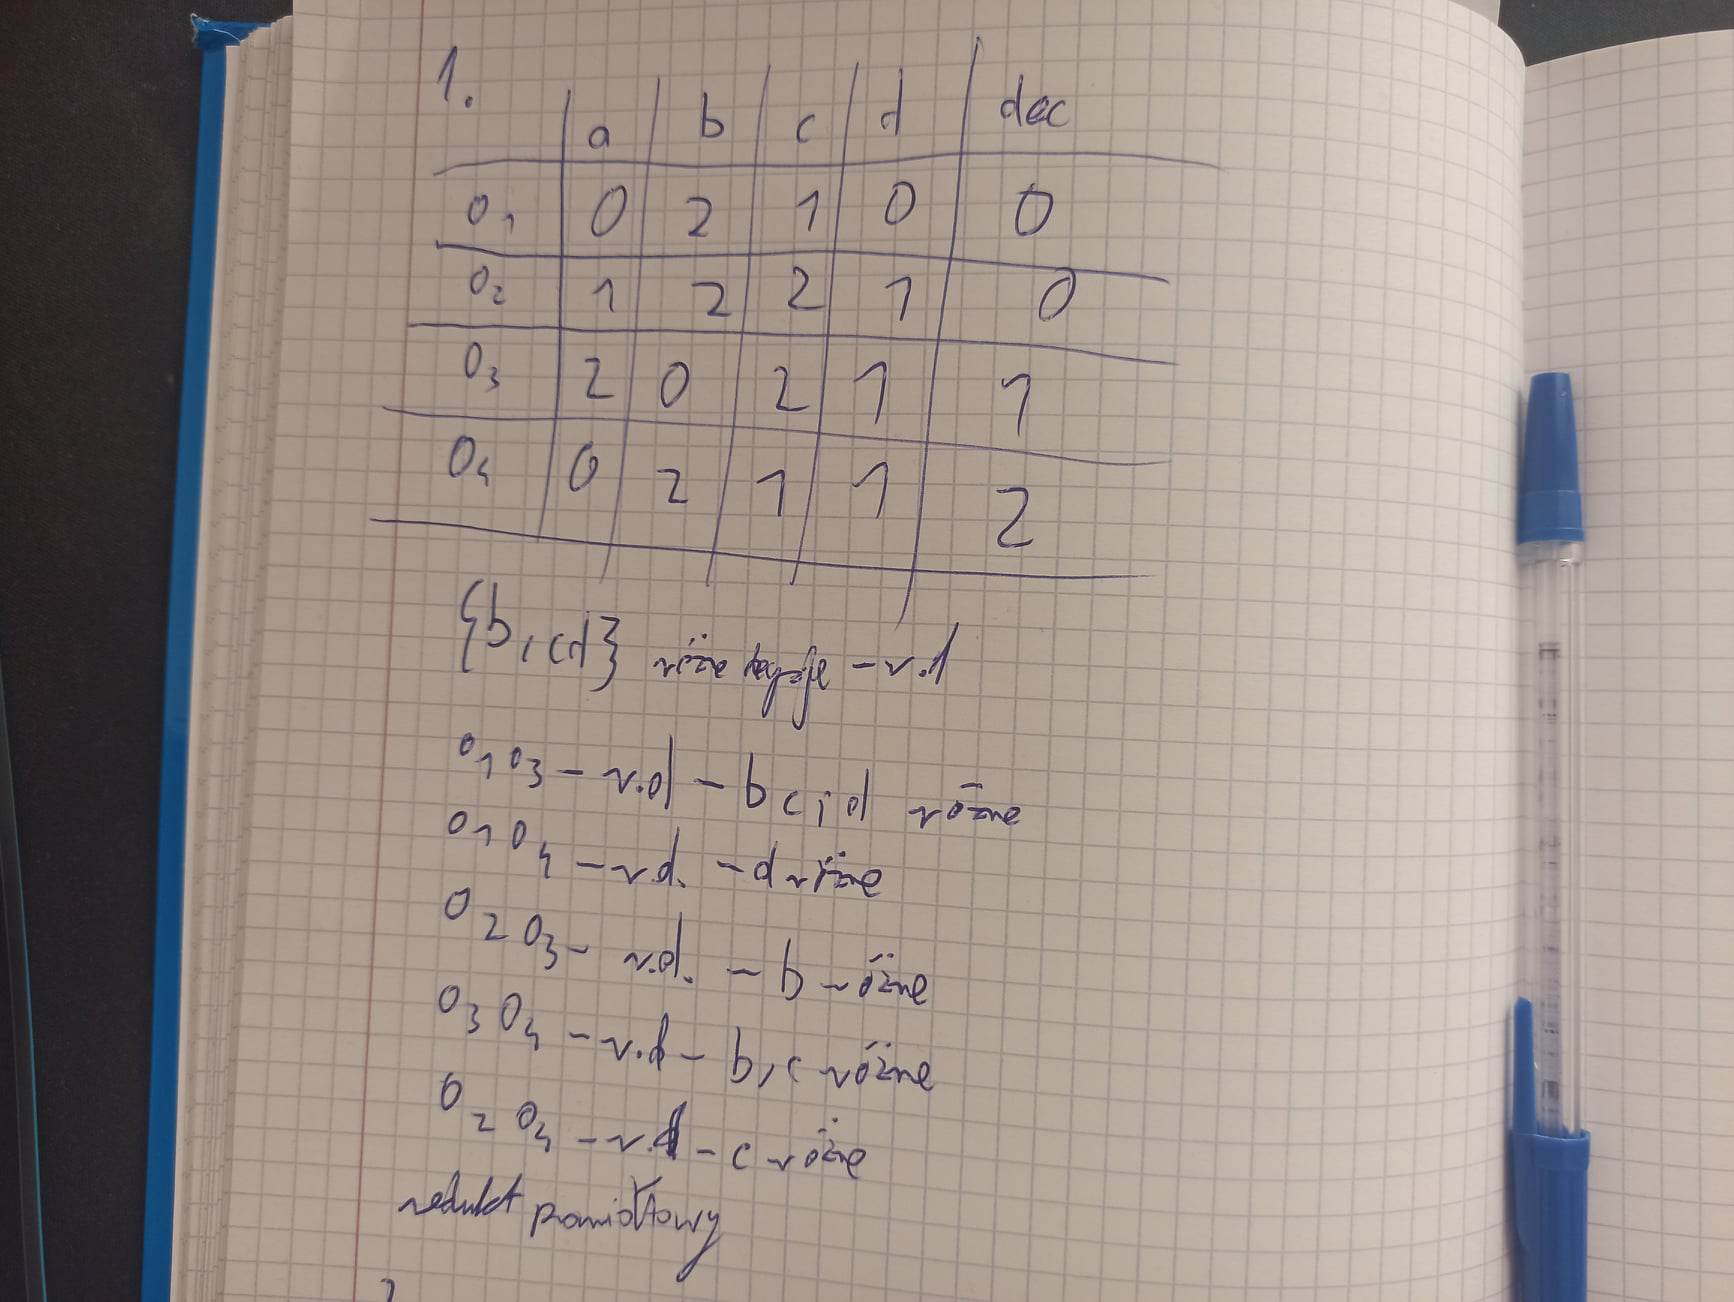 1.
a b c d dec
o1 0 2 1 0 0
o2 1 2 2 1 0
o3 2 0 2 1 1
o4 0 2 1 1 2
{b, c d} różne - r.1
o1 o3 - r.d - b c i d różne
o1 o4 - r.d. - d różne
o2 o3 - r.d. - b różne
o3 o4 - r.d - b, c różne
o2 o4 - r.d - c różne
redukt